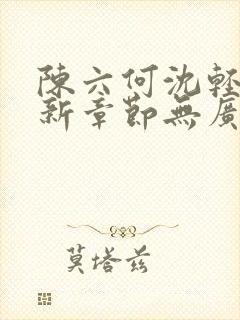 陳六何沈輕
新章節無廣
莫塔茲